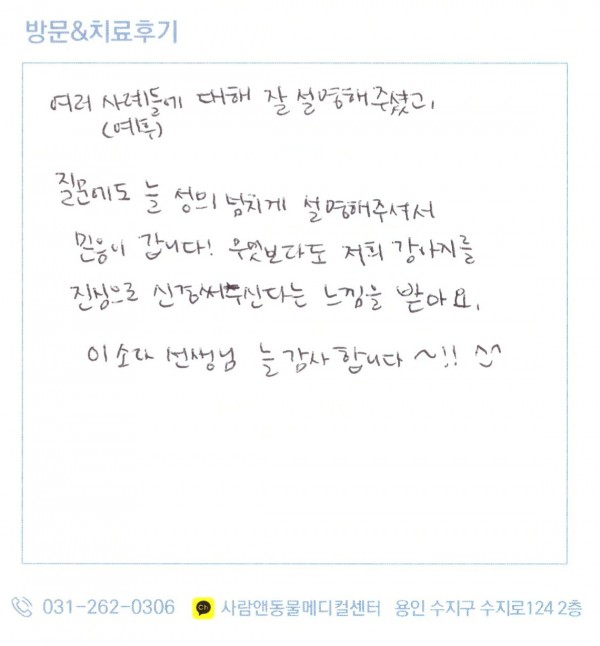 방문&치료후기
여러 사례들에 대해 잘 설명해주셨고,
(예후)
질문에도 늘 성의 넘치게 설명해주셔서
믿음이 갑니다! 무엇보다도 저희 강아지를
진심으로 신경써주신다는 느낌을 받아요.
이소다 선생님 늘 감사합니다 ~!! ^^
031-262-0306 Ch 사람앤동물메디컬센터 용인 수지구 수지로124 2층